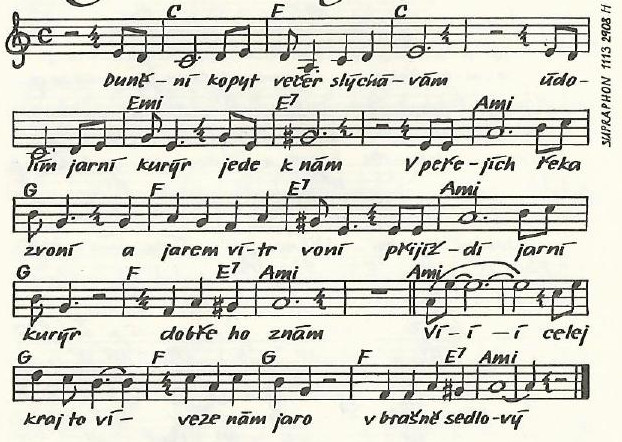 C F C
Duně-ní kopyt večer slýchá-vám údo-
Emi E7 Ami
lím jarní kurýr jede k nám V peře-jích řeka
G F E7 Ami
zvoní a jarem ví-tr voní přijíž-dí jarní
G F E7 Ami Ami
kurýr dobře ho znám Ví-í-í celej
G F G F E7 Ami
kraj to ví- veze nám jaro v brašně sedlo-vý
SUPRAPHON 1113 2908 H